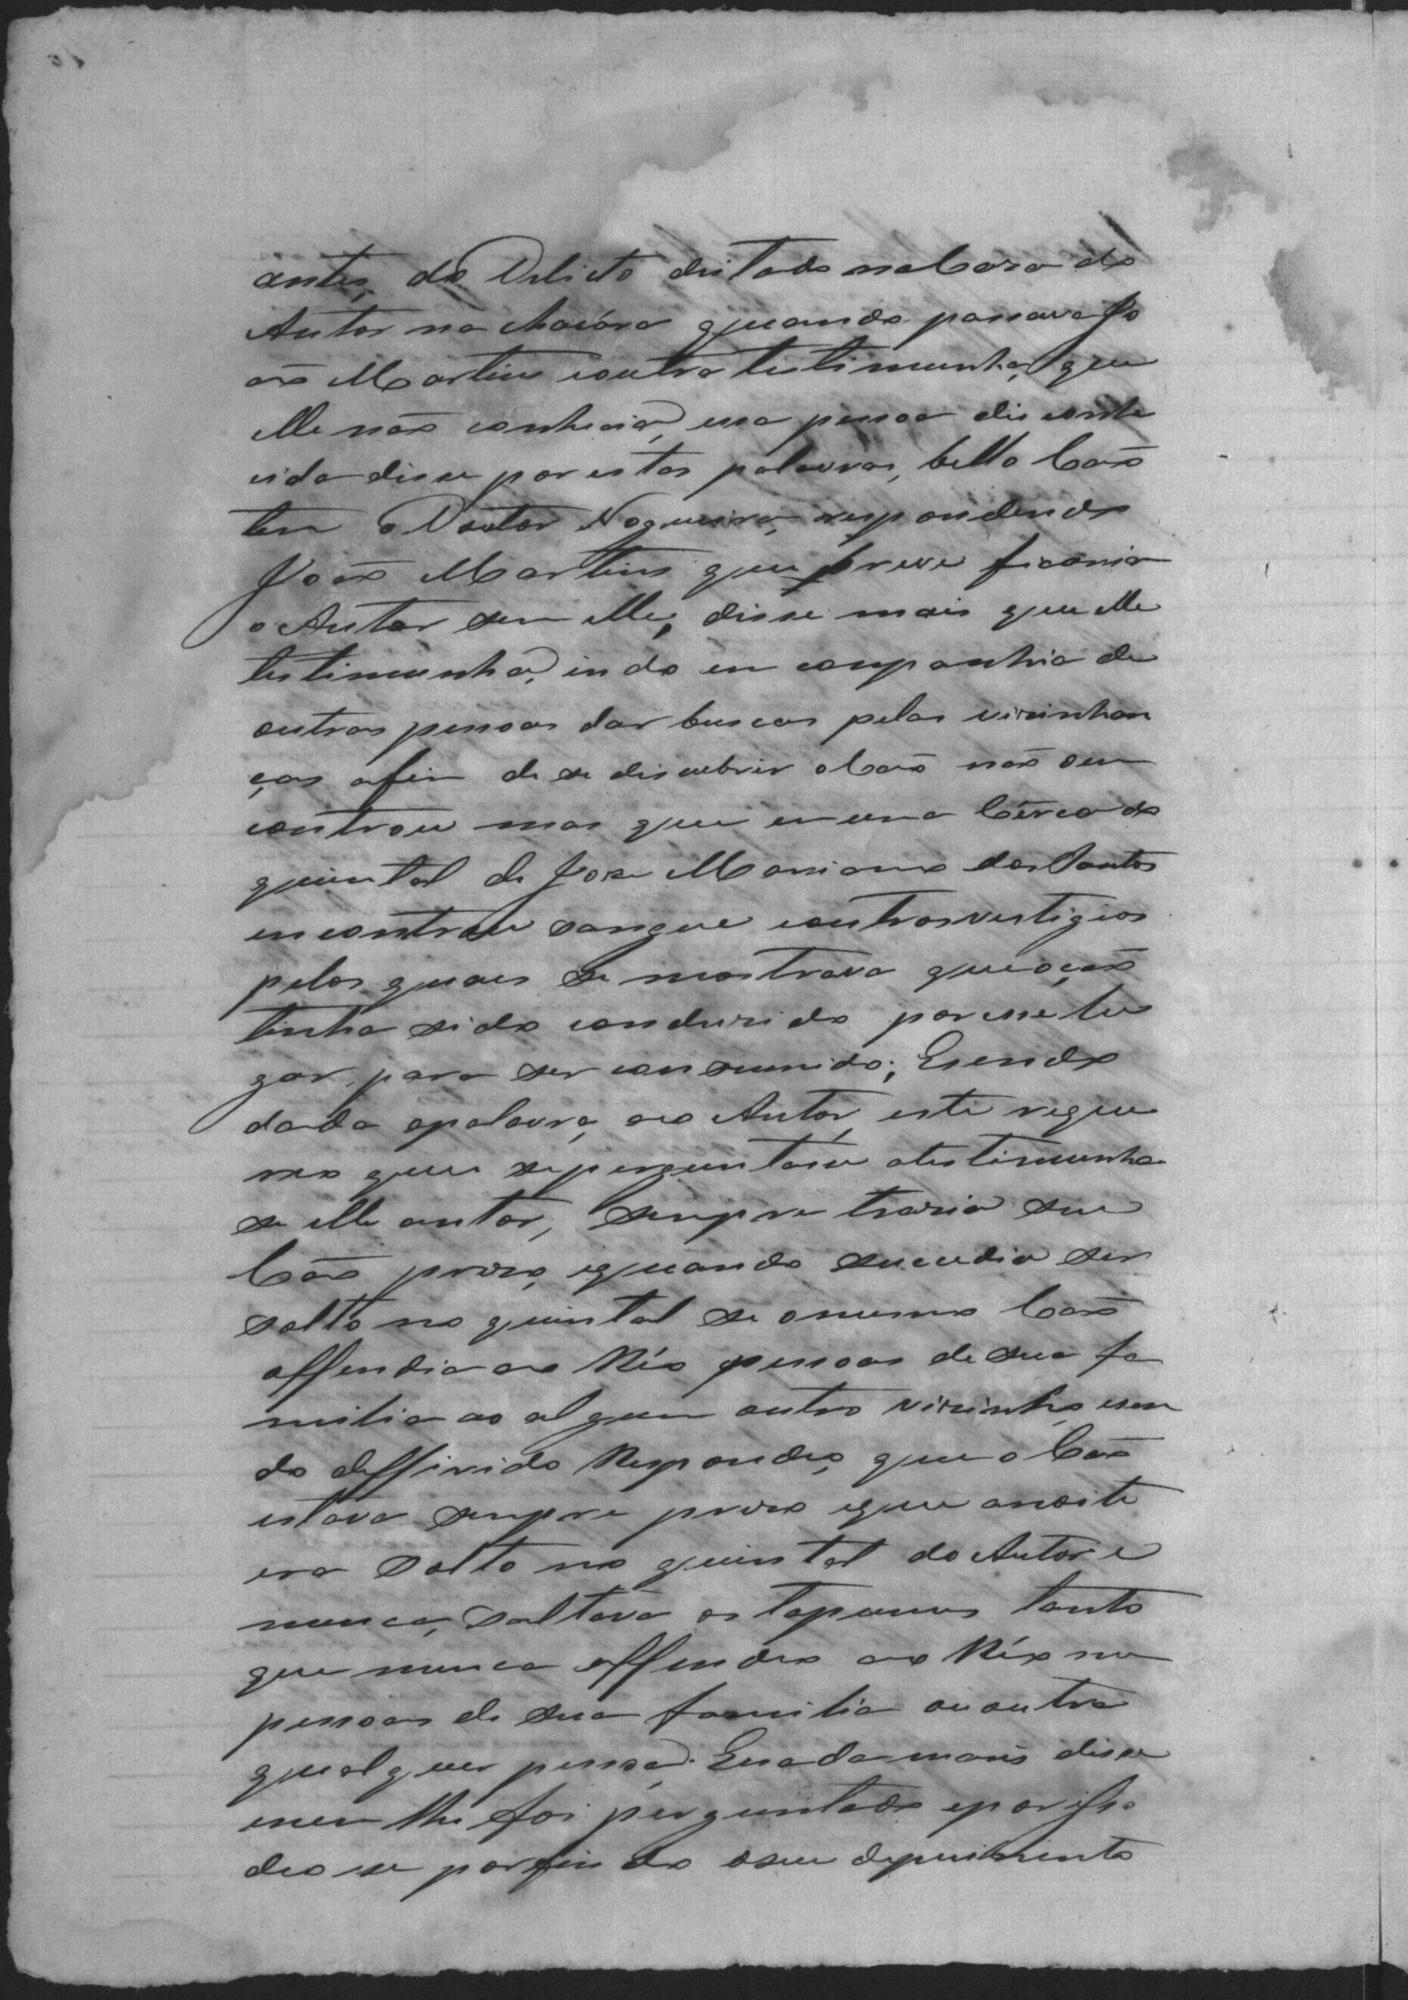 antes, do Delicto deitado na Casa do
Autor na chacára quando passava Jo
ão Martins e outra testimunha, que
elle não conhecia, essa pessoa disconhe
cida disse por estas palavras, bello Cão
tem o Doutor Nogueira, respondendo
João Martins que breve ficaria
o Autor sem elle, disse mais que elle
testimunha, indo em companhia de
outras pessoas dar buscas pelas visinhan
ças afim de se discubrir o Cão não en
controu mas que em uma Cêrca do
quintal de Jose Marianno dos Santos
encontrou sangue e outros vestigios
pelos quaes se mostrava que o cão
tinha sido condusido por esse lu
gar, para ser consumido; E sendo
dada apalavra, ao Autor, este reque
reo que se perguntasse atestimunha
se elle autor, sempre trasia seu
Cão preso, equando sucedia ser
solto no quintal se omesmo Cão
offendia ao Réo pessoas de sua fa
milia ao algum outro visinho, esen
do defferido Respondeo, que o Cão
estava sempre preso eque anoite
era solto no quintal do Autor e
nunca, saltava os tapumes tanto
que nunca offendeo ao Réo ne
pessoas de sua familia ou outra
qualquer pessoa. Enada mais disse
nem lhe foi perguntado epor isso
deo se por findo oseu depuimento